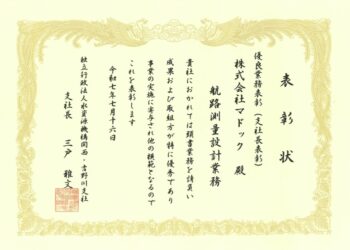 表彰状
優良業務表彰（支社長表彰）
株式会社マドック 殿
航路測量設計業務
貴社におかれては頭書業務を請負い
成果および取組方が特に優秀であり
事業の実施に寄与され他の模範となるので
これを表彰します
令和七年七月十六日
独立行政法人水資源機構関西・吉野川支社
支社長 三戸 雅文